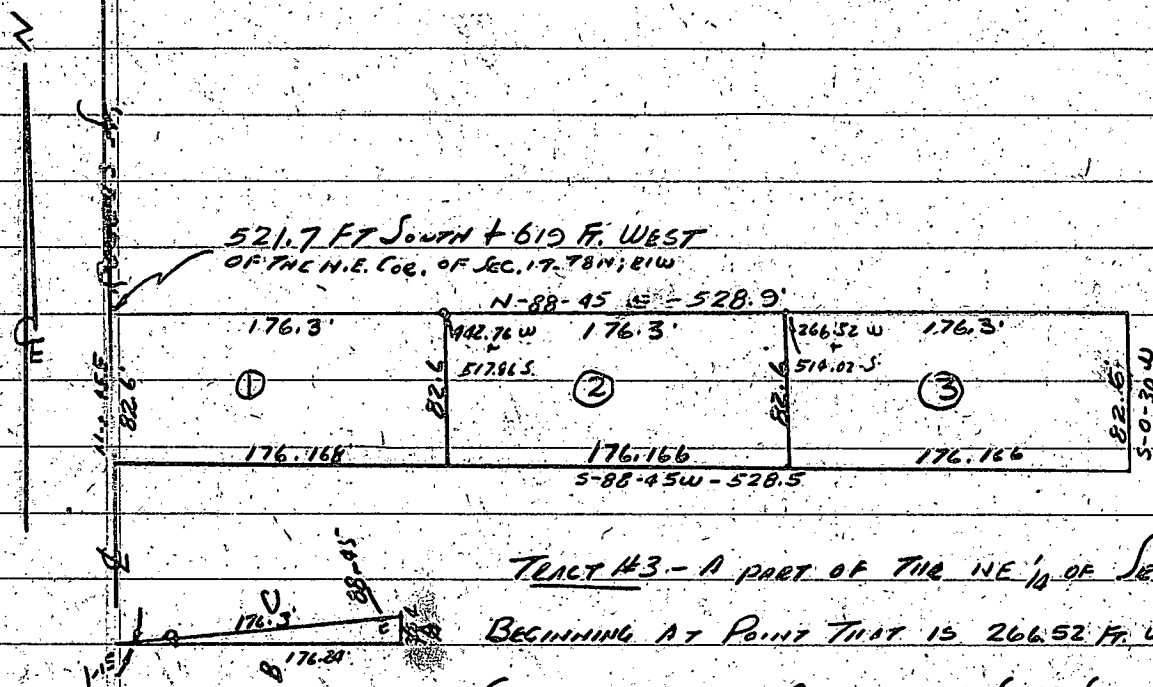 N
521.7 FT SOUTH & 619 FT. WEST
OF THE N.E. COR. OF SEC. 17-78N; 21W
N-88-45 E - 528.9'
176.3'
442.76 W
+
517.86 S.
176.3'
266.52 W
+
514.02-S
176.3'
82.6'
①
82.6
②
82.6'
③
82.6'
S-0-30 W
176.168
176.166
176.166
S-88-45W - 528.5
TRACT #3 - A PART OF THE NE 1/4 OF SE
88-45
176.3'
BEGINNING AT POINT THAT IS 266.52 FT. W
B 176.24'